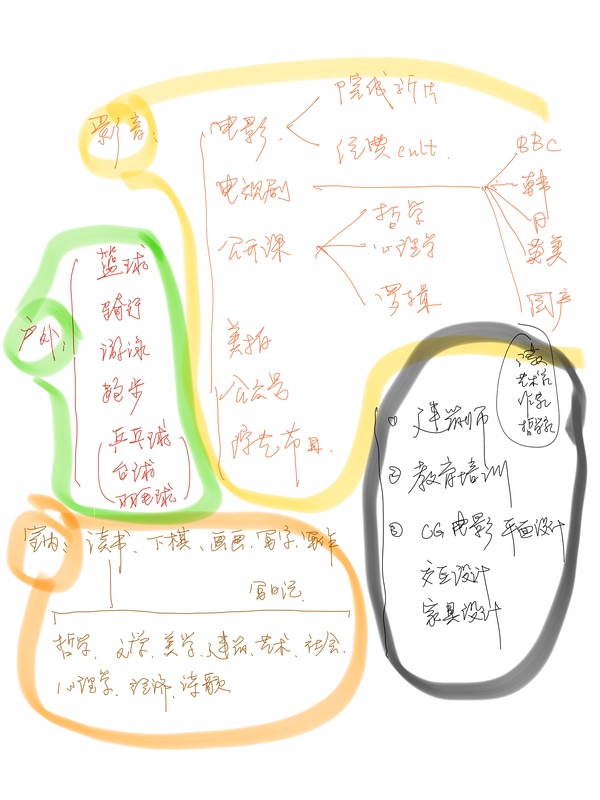 影音：
电影
院线新片
经典cult.
电视剧
BBC
韩
日
英美
国产
公开课
哲学
心理学
逻辑
美拍
公众号
综艺节目.
户外：
篮球
骑行
游泳
跑步
乒乓球
台球
羽毛球
艺术家
作家
哲学家
① 建筑师
② 教育培训
③ CG电影 平面设计
交互设计
家具设计
室内：读书、下棋、画画、写字、
写日记.
哲学、文学、美学、建筑、艺术、社会、
心理学、经济、诗歌